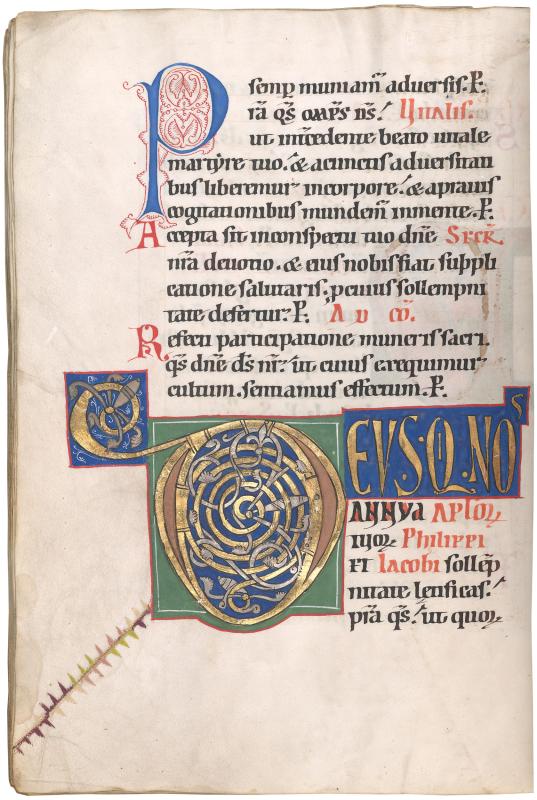 semp muniam̄ adversis. P̄.
P ra q̄s om̄ps ds̄. Vitalis.
ut int̄cedente beato vitale
martyre tuo. & a cunctis adversitati
bus liberemur in corpore. & a pravis
cogitationibus mundem̄ in mente. P̄.
Accepta sit in conspectu tuo dn̄e Secr̄.
nr̄a devotio. & eius nobis fiat suppli
catione salutaris. p cuius sollempni
tate defertur. P̄. Ad cō.
Refecti participatione muneris sacri.
q̄s dn̄e ds̄ nr̄. ut cuius exequimur
cultum. sentiamus effectum. P̄.
DEVS·Q·NOS
annua aploꝝ
tuoꝝ Philippi
et Iacobi sollēp
nitate letificas.
pr̄a q̄s. ut quoꝝ